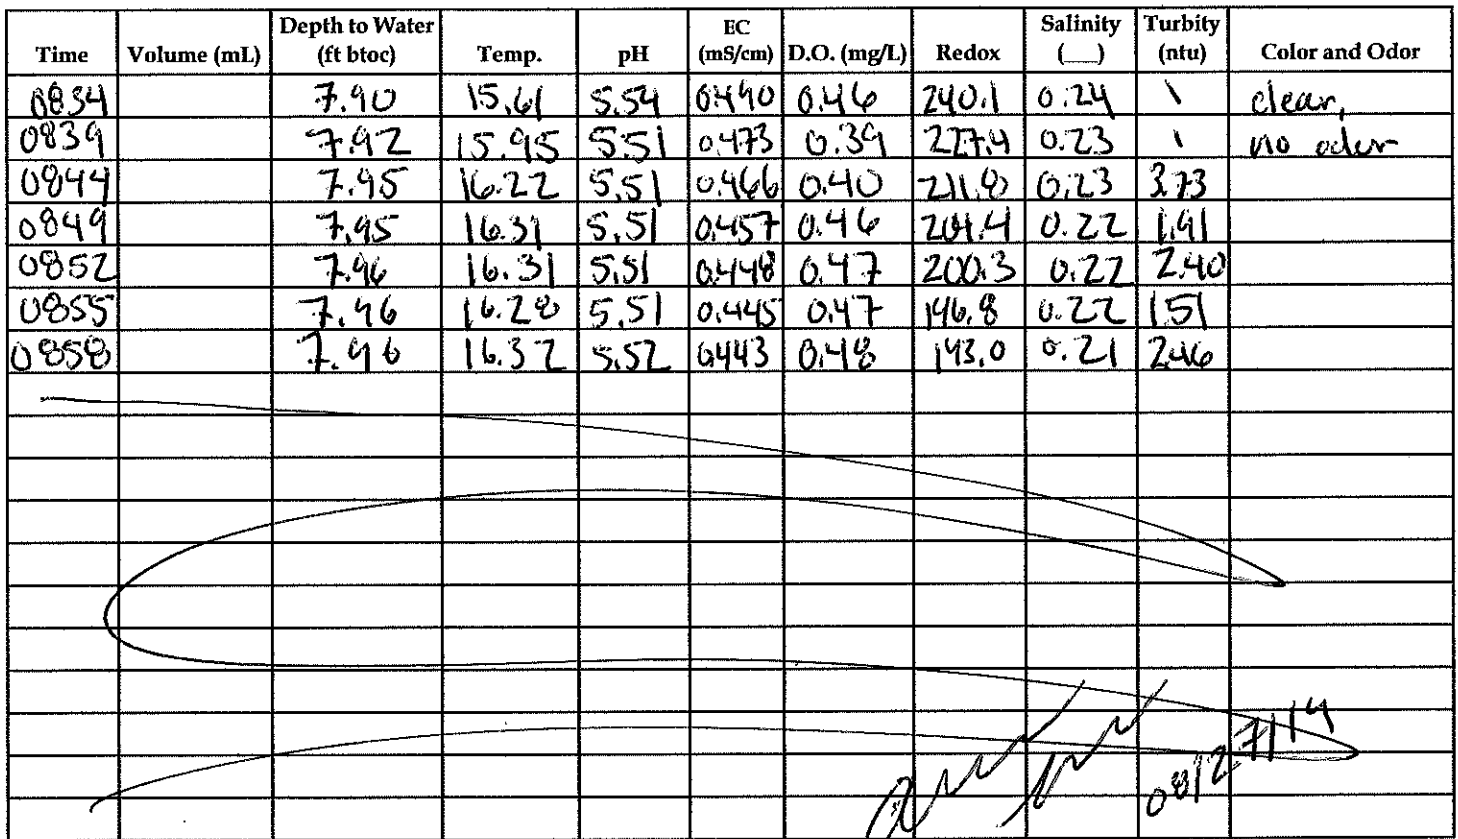 Time Volume (mL) Depth to Water (ft btoc) Temp. pH EC (mS/cm) D.O. (mg/L) Redox Salinity (__) Turbity (ntu) Color and Odor
0834 7.90 15.61 5.54 0.490 0.46 240.1 0.24 \ clear,
0839 7.92 15.95 5.51 0.473 0.39 227.4 0.23 \ no odor
0844 7.95 16.22 5.51 0.466 0.40 211.8 0.23 3.73
0849 7.95 16.31 5.51 0.457 0.46 204.4 0.22 1.91
0852 7.96 16.31 5.51 0.448 0.47 200.3 0.22 2.40
0855 7.96 16.28 5.51 0.445 0.47 196.8 0.22 1.51
0858 7.96 16.32 5.52 0.443 0.48 193.0 0.21 2.46
08/27/14